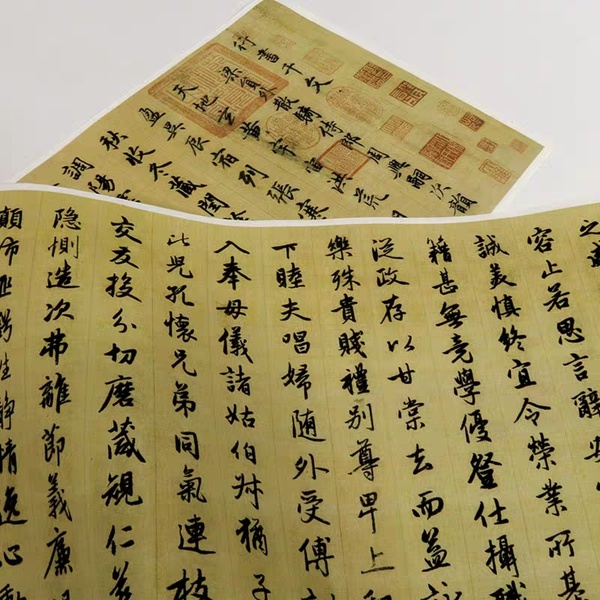 行書千文
梁員外散騎侍郎周興嗣次韻
天地玄黃宇宙洪荒
盈昃辰宿列張寒
秋收冬藏閏餘
調陽
之
容止若思言辭安
誠美慎終宜令榮業所基
籍甚無竟學優登仕攝職
從政存以甘棠去而益詠
樂殊貴賤禮別尊卑上和
下睦夫唱婦隨外受傅
入奉母儀諸姑伯叔猶子
比兒孔懷兄弟同氣連枝
交友投分切磨箴規仁慈
隱惻造次弗離節義廉
顛沛匪虧性靜情逸心動